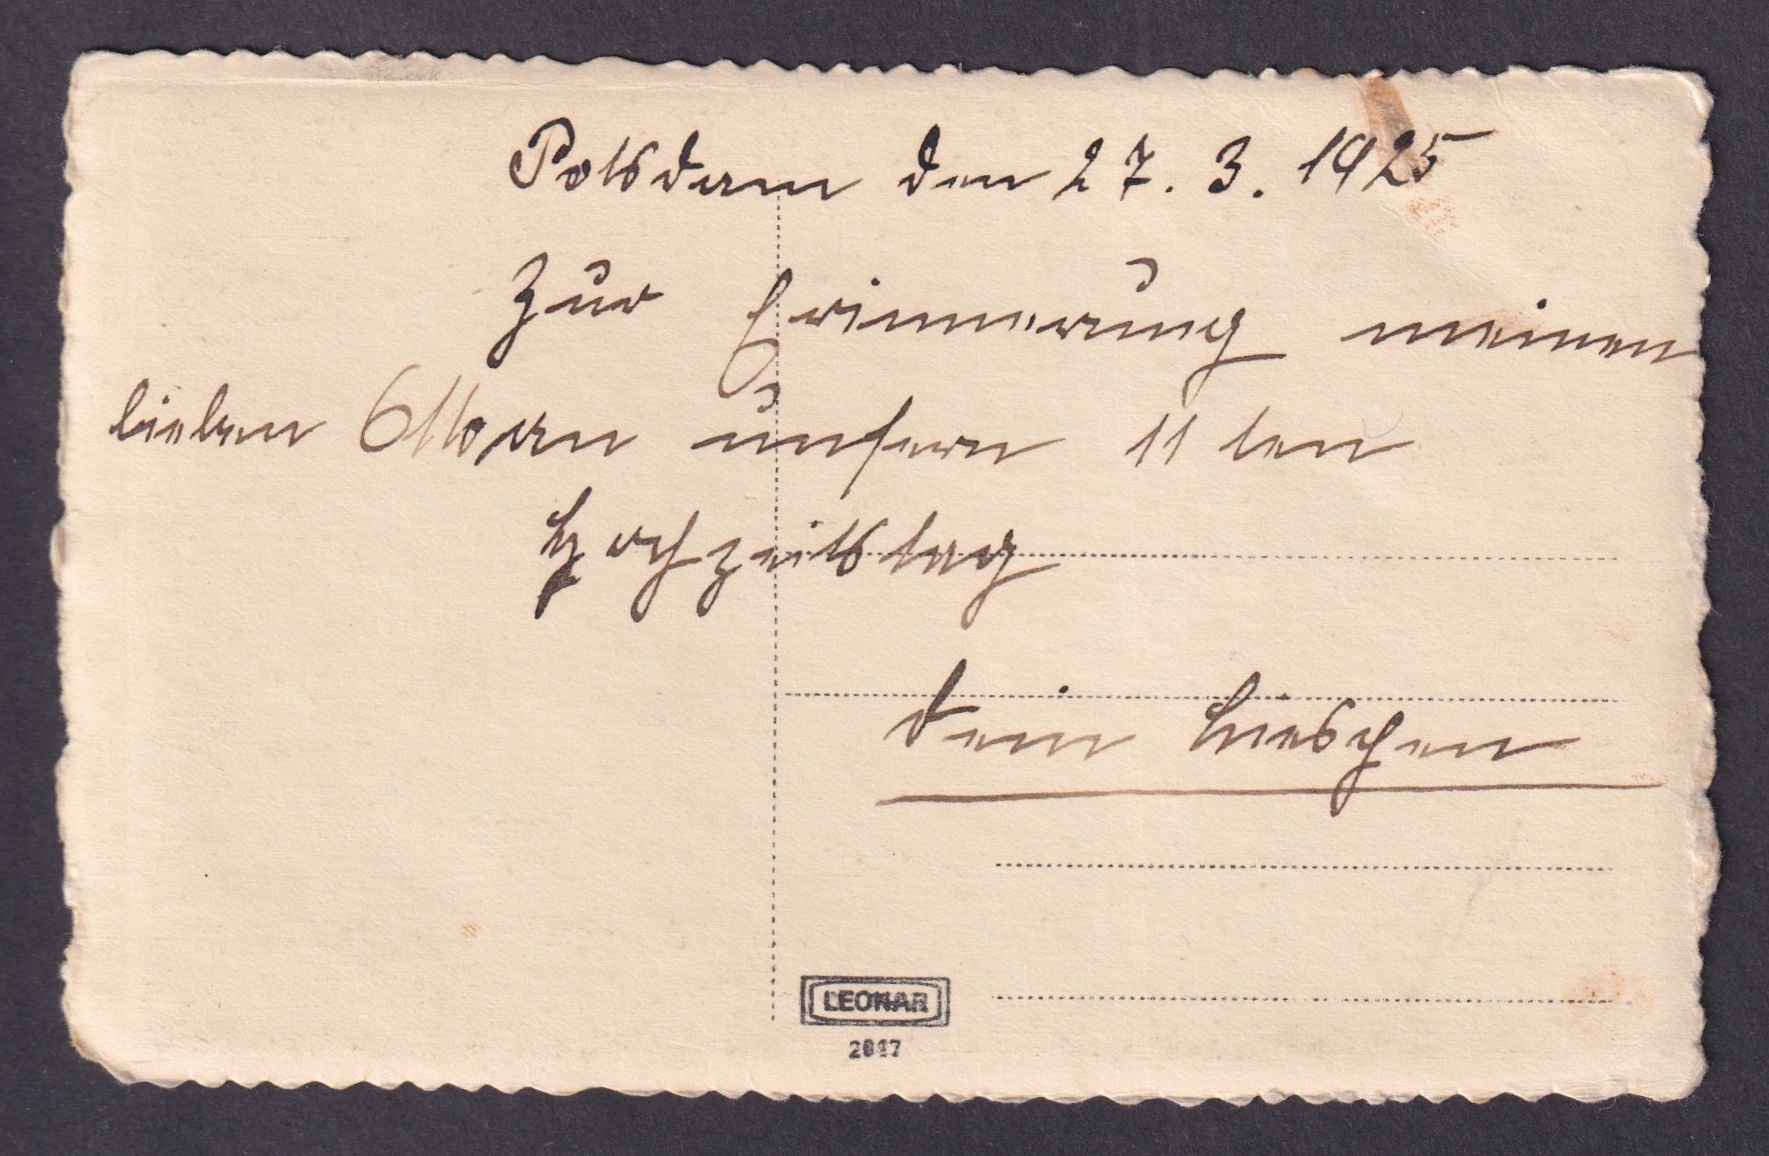 Potsdam den 27. 3. 1925
Zur Erinnerung meinen
lieben Otto an unsern 11 ten
Hochzeitstag
Dein Lieschen
LEONAR